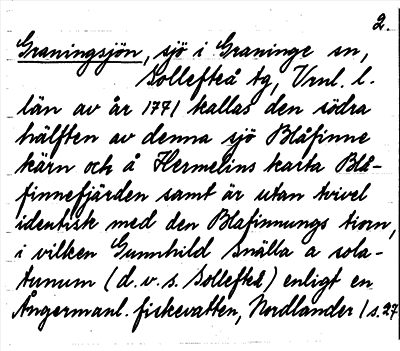 2.
Graningsjön, sjö i Graninge sn,
Sollefteå tg, Vrnl. l.
län av år 1771 kallas den södra
hälften av denna sjö Blåfinne
kärn och å Hermelins karta Blå-
finnefjärden samt är utan tvivel
identisk med den Blafinnungs tiorn,
i vilken Gunnhild Snälla a sola-
tunum (d.v.s. Solleftel) enligt en
Ångermanl. fiskevatten, Nordlander 1 s. 27